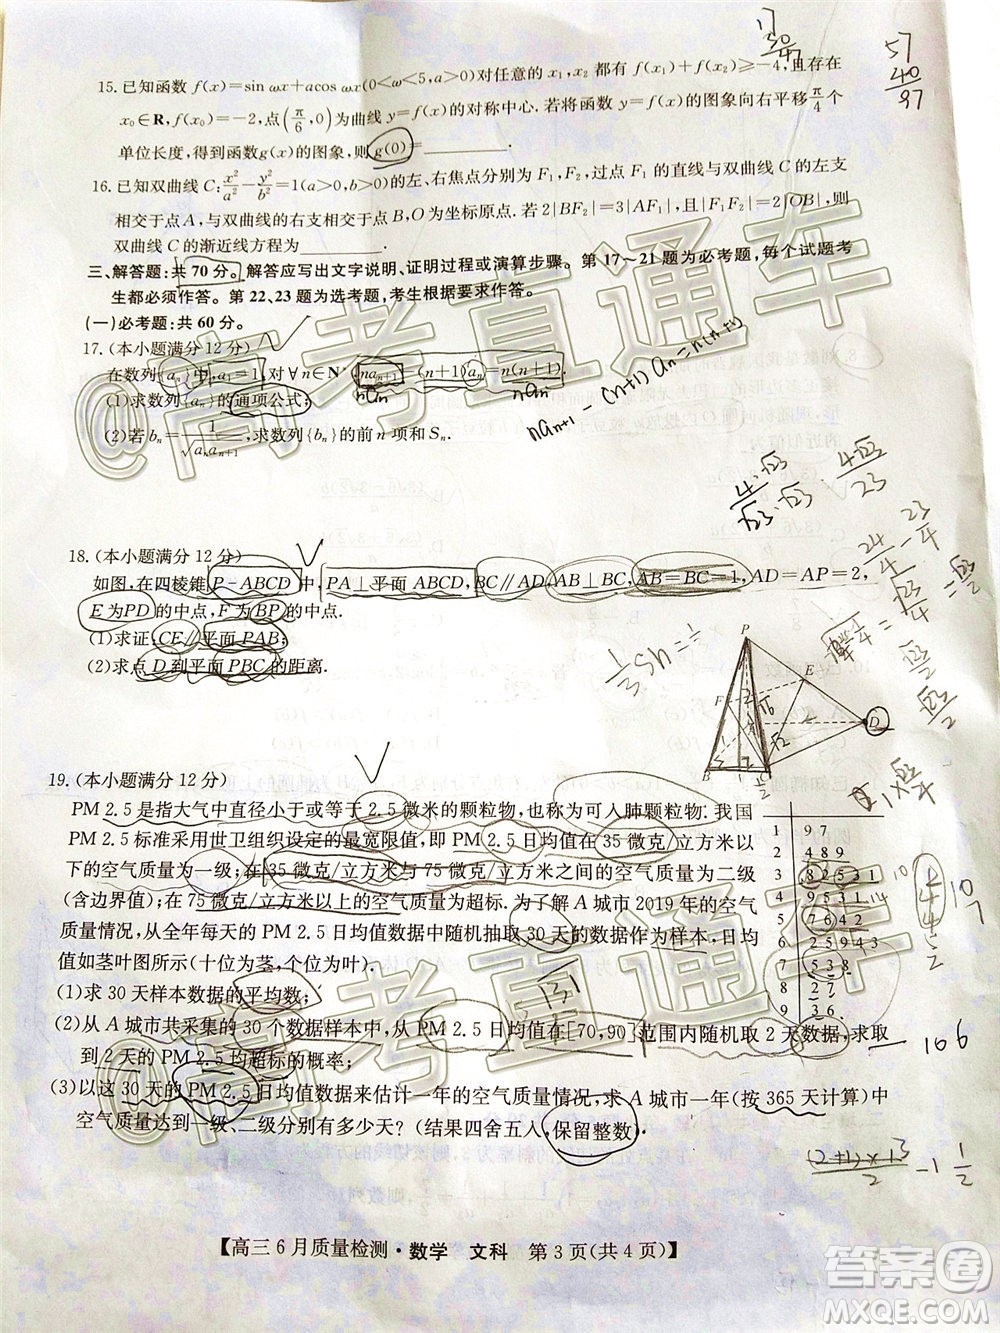 15.已知函数 f(x)=sin ωx+acos ωx(0<ω<5,a>0)对任意的 x₁,x₂ 都有 f(x₁)+f(x₂)≥-4,且存在
x₀∈R,f(x₀)=-2,点(π/6,0)为曲线 f(x)的对称中心.若将函数 y=f(x)的图象向右平移π/4个
单位长度,得到函数g(x)的图象,则 g(0)=________.
16.已知双曲线 C:x²/a²-y²/b²=1(a>0,b>0)的左、右焦点分别为 F₁,F₂,过点 F₁ 的直线与双曲线 C 的左支
相交于点 A,与双曲线的右支相交于点 B,O 为坐标原点.若 2|BF₂|=3|AF₁|,且|F₁F₂|=2|OB|,则
双曲线 C 的渐近线方程为________.
三、解答题:共 70 分。解答应写出文字说明、证明过程或演算步骤。第 17~21 题为必考题,每个试题考
生都必须作答。第 22、23 题为选考题,考生根据要求作答。
(一)必考题:共 60 分。
17.(本小题满分 12 分)
在数列{aₙ}中,a₁=1,对∀n∈N* naₙ₊₁-(n+1)aₙ=n(n+1).
(1)求数列{aₙ}的通项公式;
(2)若 bₙ=1/√(aₙaₙ₊₁),求数列{bₙ}的前 n 项和 Sₙ.
18.(本小题满分 12 分)
如图,在四棱锥 P-ABCD 中,PA⊥平面 ABCD,BC∥AD,AB⊥BC,AB=BC=1,AD=AP=2,
E 为PD 的中点,F 为 BP 的中点.
(1)求证:CE∥平面 PAB;
(2)求点 D 到平面 PBC 的距离.
P
E
F
D
B
C
19.(本小题满分 12 分)
PM 2.5 是指大气中直径小于或等于 2.5 微米的颗粒物,也称为可入肺颗粒物.我国
PM 2.5 标准采用世卫组织设定的最宽限值,即 PM 2.5 日均值在 35 微克/立方米以
下的空气质量为一级;在 35 微克/立方米与 75 微克/立方米之间的空气质量为二级
(含边界值);在 75 微克/立方米以上的空气质量为超标.为了解 A 城市 2019 年的空气
质量情况,从全年每天的 PM 2.5 日均值数据中随机抽取 30 天的数据作为样本,日均
值如茎叶图所示(十位为茎,个位为叶).
1 | 9 7
2 | 4 8 9
3 | 8 2 5 3 1
4 | 9 5 3 1
5 | 7 6 4 2
6 | 2 5 9 4 3
7 | 5 3 8
(1)求 30 天样本数据的平均数;
(2)从 A 城市共采集的 30 个数据样本中,从 PM 2.5 日均值在[70,90]范围内随机取 2 天数据,求取
到 2 天的 PM 2.5 均超标的概率;
(3)以这 30 天的 PM 2.5 日均值数据来估计一年的空气质量情况,求 A 城市一年(按 365 天计算)中
空气质量达到一级、二级分别有多少天?(结果四舍五入,保留整数).
【高三 6 月质量检测·数学 文科 第 3 页(共 4 页)】
@高考直通车
@高考直通车
答案圈
MXQE.COM